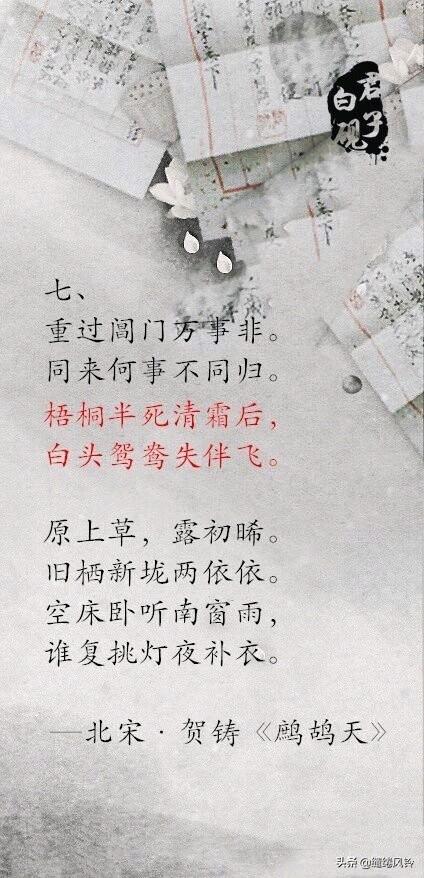 君子
白砚
七、
重过阊门万事非。
同来何事不同归。
梧桐半死清霜后，
白头鸳鸯失伴飞。
原上草，露初晞。
旧栖新垅两依依。
空床卧听南窗雨，
谁复挑灯夜补衣。
—北宋·贺铸《鹧鸪天》
头条 @缱绻风铃